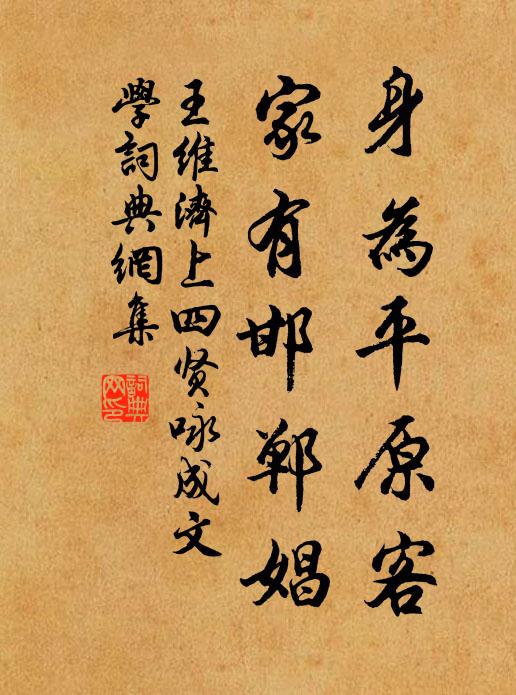 身為平原客
家有邯鄲娼
王維濟上四贤咏成文
學詞典網集
詞典網印